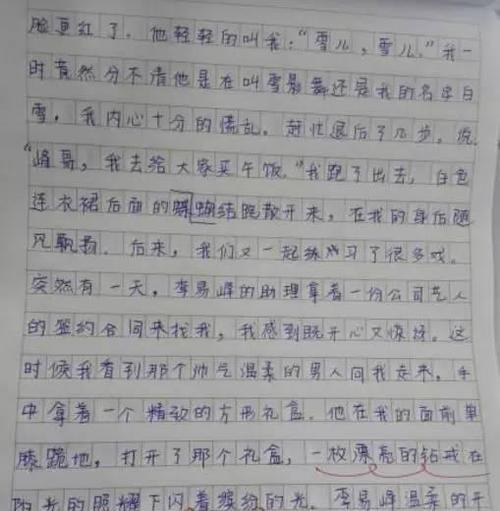 脸更红了。他轻轻的叫我：“雪儿，雪儿。”我一
时竟然分不清他是在叫雪影舞还是我的名字白
雪。我内心十分的慌乱。赶忙退后了几步。说
“峰哥，我去给大家买午饭。”我跑了出去，白色
连衣裙后面的蝴蝶结脱散开来，在我的身后随
风飘扬。后来，我们又一起练习了很多戏。
突然有一天，李易峰的助理拿着一份公司艺人
的签约合同来找我，我感到既开心又惊讶。这
时候我看到那个帅气温柔的男人向我走来，手
中拿着一个精致的方形礼盒。他在我的面前单
膝跪地，打开了那个礼盒，一枚漂亮的钻戒在
阳光的照耀下闪着缤纷的光。李易峰温柔的开